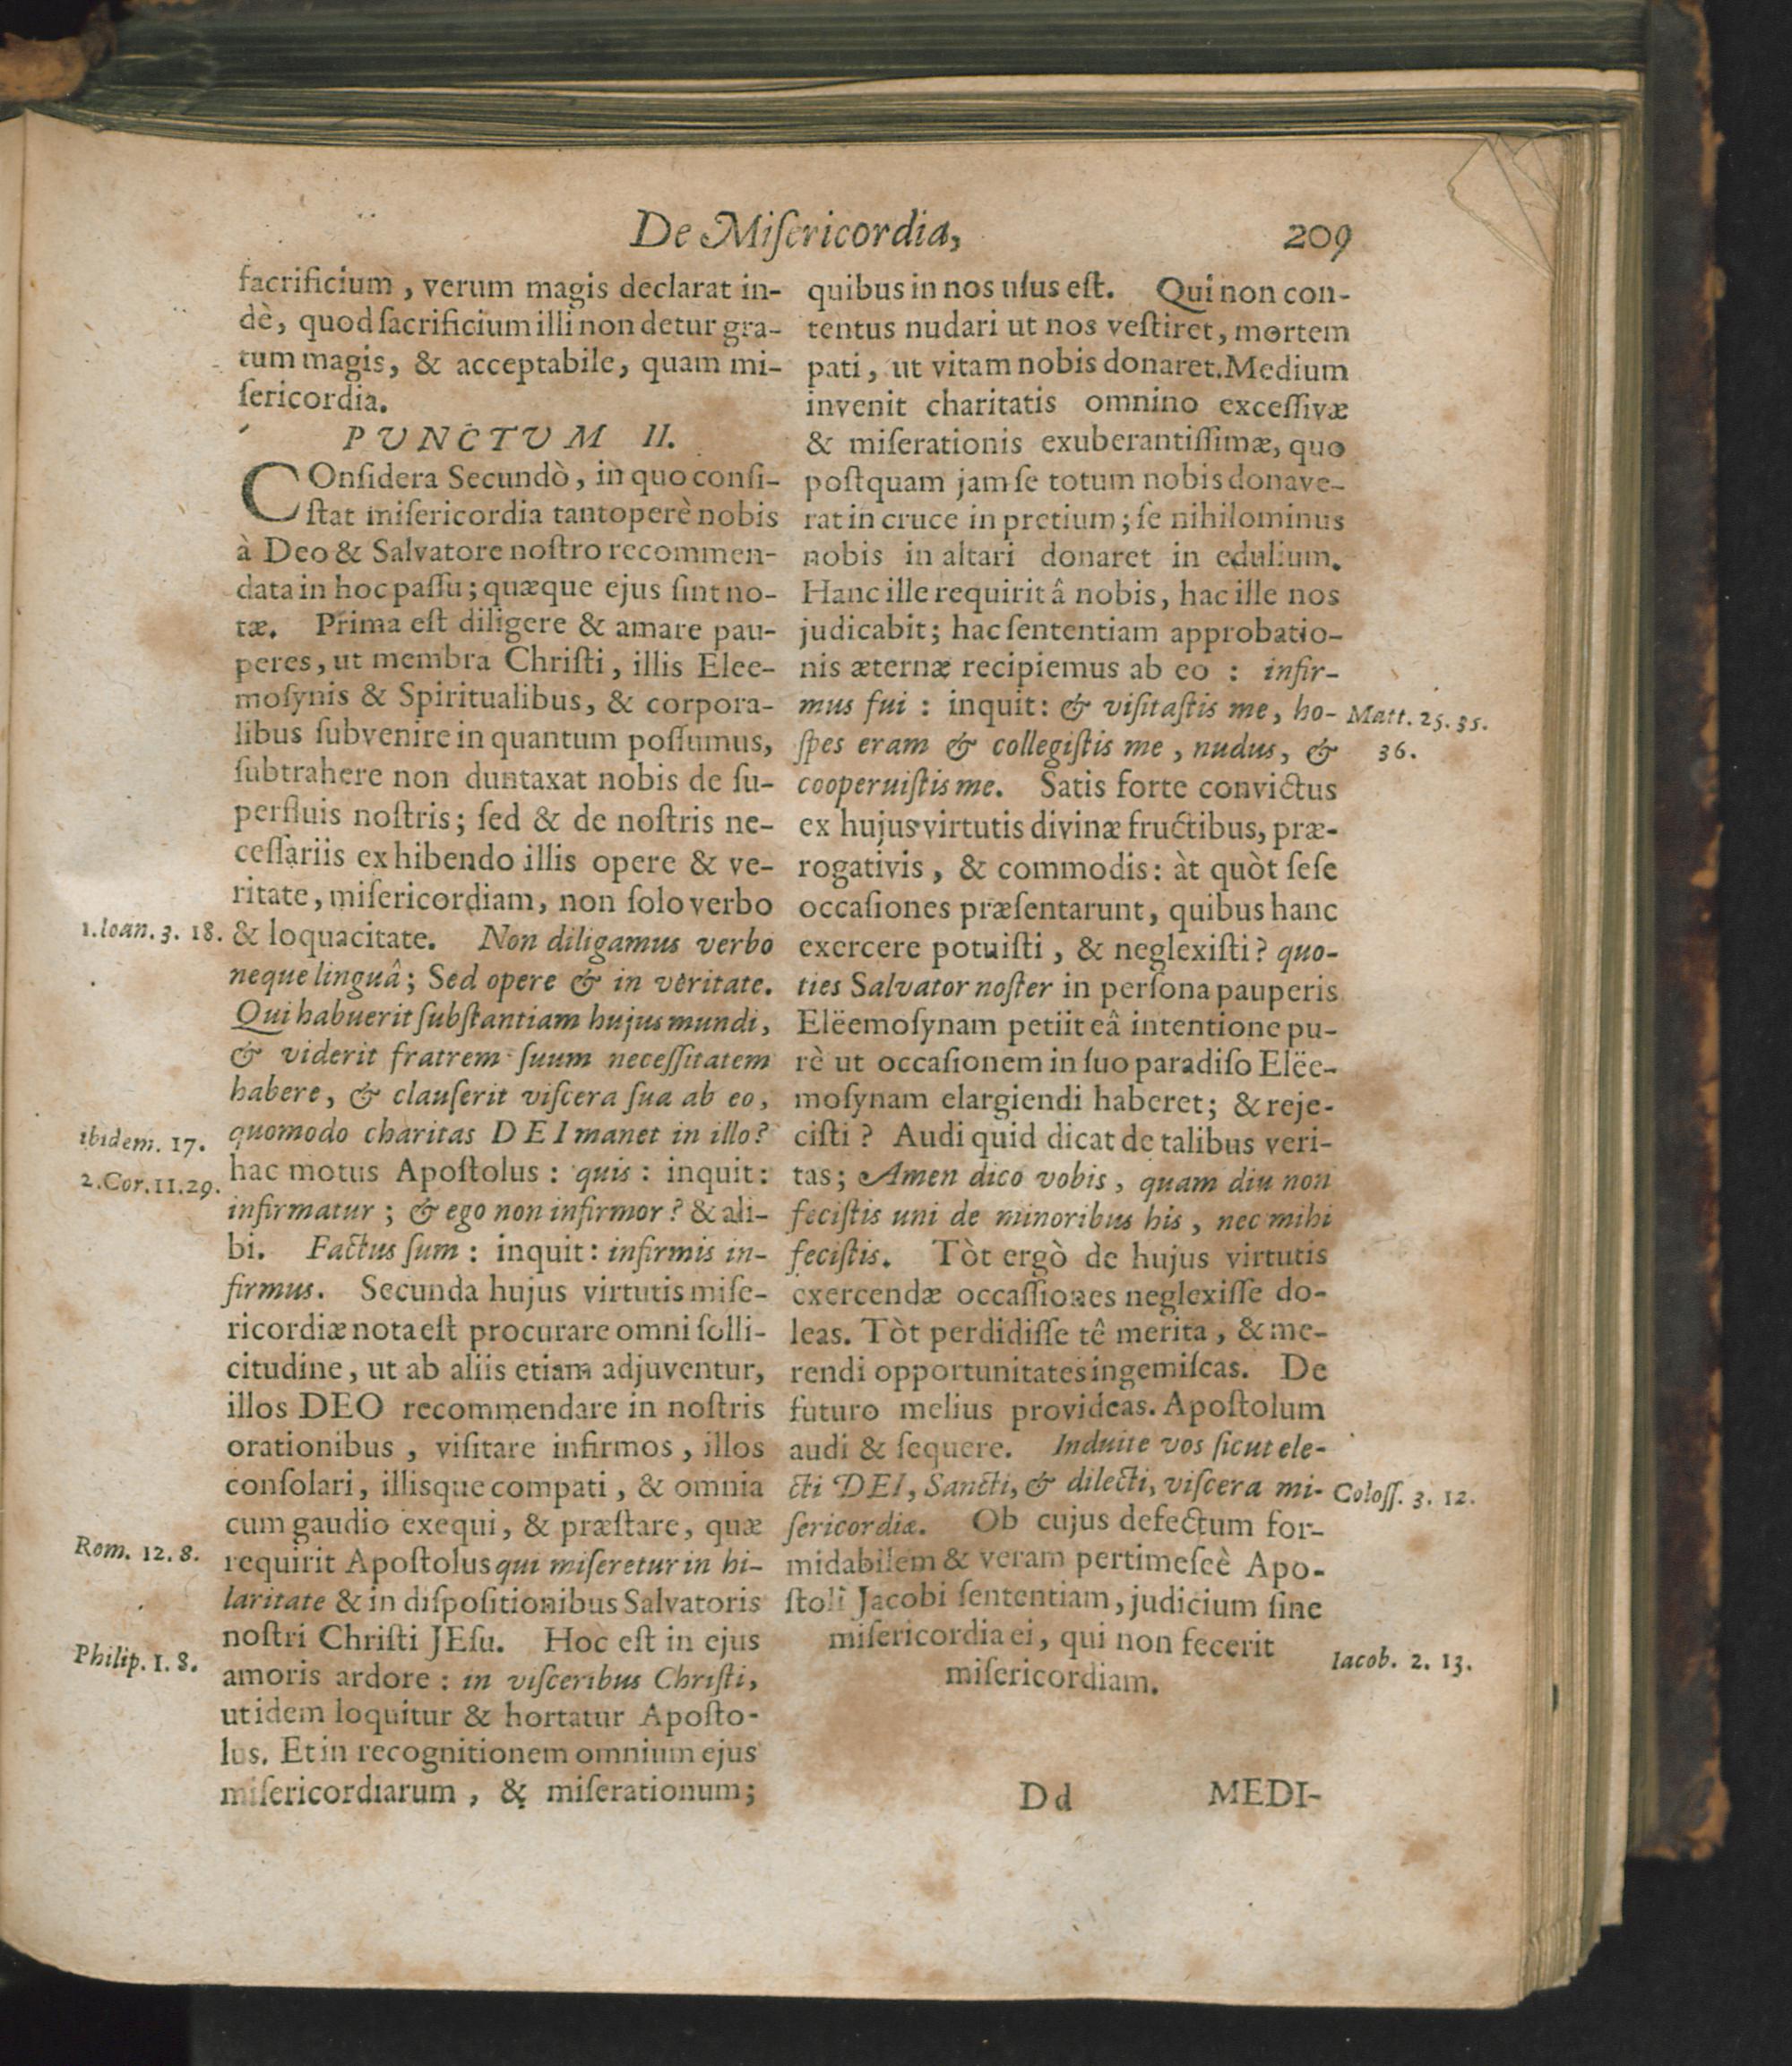 De Miſericordia,
209
ſacrificium, verum magis declarat in-
dè, quod ſacrificium illi non detur gra-
tum magis, & acceptabile, quam mi-
ſericordia.
PUNCTUM II.
COnſidera Secundò, in quo conſi-
ſtat miſericordia tantoperè nobis
à Deo & Salvatore noſtro recommen-
data in hoc paſſu; quæque ejus ſint no-
tæ. Prima eſt diligere & amare pau-
peres, ut membra Chriſti, illis Elee-
moſynis & Spiritualibus, & corpora-
libus ſubvenire in quantum poſſumus,
ſubtrahere non duntaxat nobis de ſu-
perfluis noſtris; ſed & de noſtris ne-
ceſſariis exhibendo illis opere & ve-
ritate, miſericordiam, non ſolo verbo
1.Ioan. 3. 18.
& loquacitate. Non diligamus verbo
neque linguâ; Sed opere & in veritate.
Qui habuerit ſubſtantiam hujus mundi,
& viderit fratrem ſuum neceſſitatem
habere, & clauſerit viſcera ſua ab eo,
ibidem. 17.
quomodo charitas DEI manet in illo?
2.Cor.11.29.
hac motus Apoſtolus: quis: inquit:
infirmatur; & ego non infirmor? & ali-
bi. Factus ſum: inquit: infirmis in-
firmus. Secunda hujus virtutis miſe-
ricordiæ nota eſt procurare omni ſolli-
citudine, ut ab aliis etiam adjuventur,
illos DEO recommendare in noſtris
orationibus, viſitare infirmos, illos
conſolari, illisque compati, & omnia
cum gaudio exequi, & præſtare, quæ
Rom. 12. 8.
requirit Apoſtolus qui miſeretur in hi-
laritate & in diſpoſitionibus Salvatoris
noſtri Chriſti JEſu. Hoc eſt in ejus
Philip. 1. 8.
amoris ardore: in viſceribus Chriſti,
ut idem loquitur & hortatur Apoſto-
lus. Et in recognitionem omnium ejus
miſericordiarum, & miſerationum;
quibus in nos uſus eſt. Qui non con-
tentus nudari ut nos veſtiret, mortem
pati, ut vitam nobis donaret. Medium
invenit charitatis omnino exceſſivæ
& miſerationis exuberantiſſimæ, quo
poſtquam jam ſe totum nobis donave-
rat in cruce in pretium; ſe nihilominus
nobis in altari donaret in edulium.
Hanc ille requirit â nobis, hac ille nos
judicabit; hac ſententiam approbatio-
nis æternæ recipiemus ab eo: infir-
mus fui: inquit: & viſitaſtis me, ho-
Matt. 25. 35.
ſpes eram & collegiſtis me, nudus, &
36.
cooperuiſtis me. Satis forte convictus
ex hujus virtutis divinæ fructibus, præ-
rogativis, & commodis: àt quòt ſeſe
occaſiones præſentarunt, quibus hanc
exercere potuiſti, & neglexiſti? quo-
ties Salvator noſter in perſona pauperis
Elëemoſynam petiit eâ intentione pu-
rè ut occaſionem in ſuo paradiſo Elëe-
moſynam elargiendi haberet; & reje-
ciſti? Audi quid dicat de talibus veri-
tas; Amen dico vobis, quam diu non
feciſtis uni de minoribus his, nec mihi
feciſtis. Tòt ergò de hujus virtutis
exercendæ occaſſiones neglexiſſe do-
leas. Tòt perdidiſſe tê merita, & me-
rendi opportunitates ingemiſcas. De
futuro melius provideas. Apoſtolum
audi & ſequere. Induite vos ſicut ele-
cti DEI, Sancti, & dilecti, viſcera mi-
Coloſſ. 3. 12.
ſericordiæ. Ob cujus defectum for-
midabilem & veram pertimeſcè Apo-
ſtoli Jacobi ſententiam, judicium ſine
miſericordia ei, qui non fecerit
Iacob. 2. 13.
miſericordiam.
Dd
MEDI-